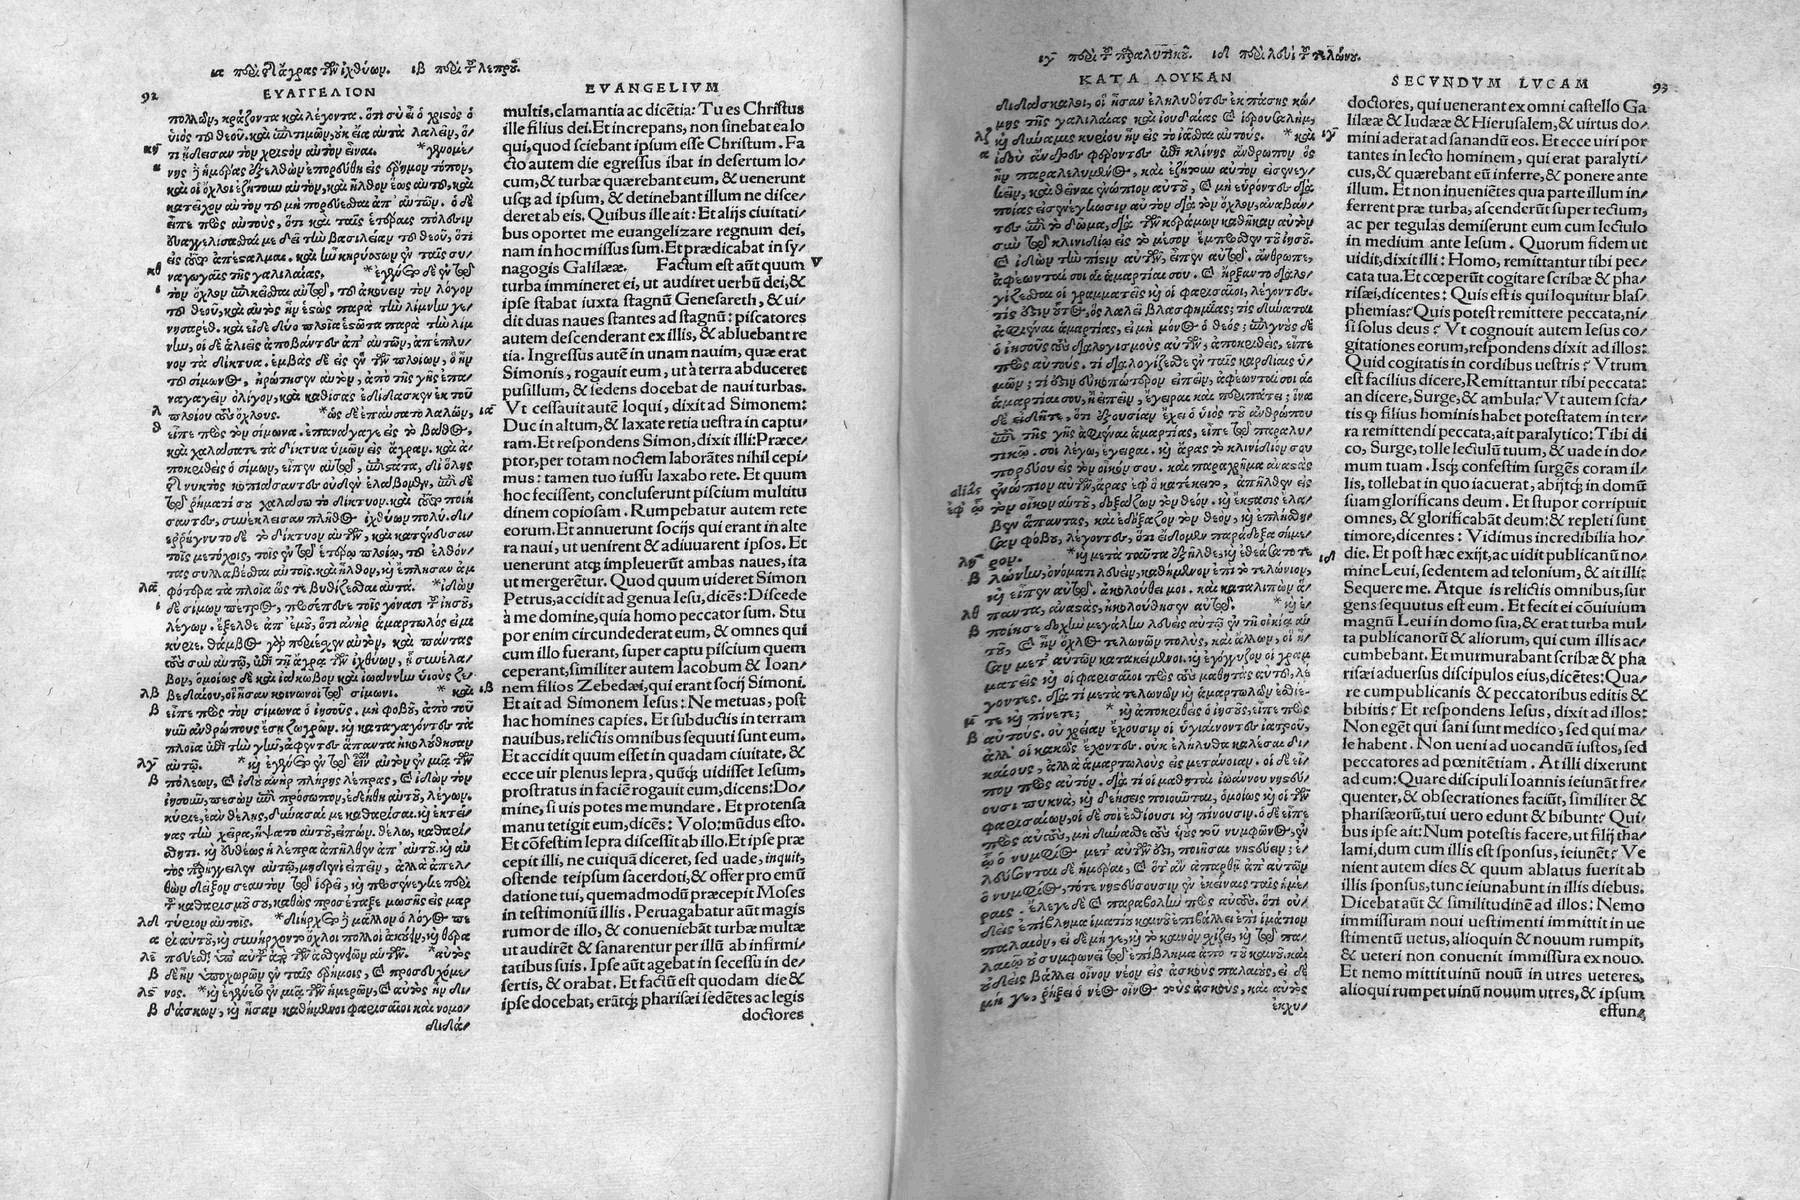 ια περὶ τῆς ἄγρας τῶν ἰχθύων. ιβ περὶ τοῦ λεπροῦ.
92 ΕΥΑΓΓΕΛΙΟΝ
πολλῶν, κράζοντα καὶ λέγοντα. ὅτι σὺ εἶ ὁ χριστὸς ὁ
ὑιὸς τοῦ θεοῦ. καὶ ἐπιτιμῶν, οὐκ εἴα αὐτὰ λαλεῖν, ὅ/
κη τι ᾔδεισαν τὸν χριστὸν αὐτὸν εἶναι. *γενομέ/
νης δὲ ἡμέρας ἐξελθὼν ἐπορεύθη εἰς ἔρημον τόπον,
καὶ οἱ ὄχλοι ἐζήτουν αὐτὸν, καὶ ἦλθον ἕως αὐτοῦ, καὶ
κατεῖχον αὐτὸν τοῦ μὴ πορεύεσθαι ἀπ' αὐτῶν. ὁ δὲ
εἶπε πρὸς αὐτοὺς, ὅτι καὶ ταῖς ἑτέραις πόλεσιν
εὐαγγελίσασθαί με δεῖ τὴν βασιλείαν τοῦ θεοῦ, ὅτι
εἰς τοῦτο ἀπέσταλμαι. καὶ ἦν κηρύσσων ἐν ταῖς συ/
κθ ναγωγαῖς τῆς γαλιλαίας. *ἐγένετο δὲ ἐν τῷ
τὸν ὄχλον ἐπικεῖσθαι αὐτῷ, τοῦ ἀκούειν τὸν λόγον
τοῦ θεοῦ, καὶ αὐτὸς ἦν ἑστὼς παρὰ τὴν λίμνην γε/
νησαρέθ. καὶ εἶδε δύο πλοῖα ἑστῶτα παρὰ τὴν λίμ
νην, οἱ δὲ ἁλιεῖς ἀποβάντες ἀπ' αὐτῶν, ἀπέπλυ/
νον τὰ δίκτυα. ἐμβὰς δὲ εἰς ἓν τῶν πλοίων, ὃ ἦν
τοῦ σίμωνος, ἠρώτησεν αὐτὸν, ἀπὸ τῆς γῆς ἐπα/
ναγαγεῖν ὀλίγον, καὶ καθίσας ἐδίδασκεν ἐκ τοῦ
λ πλοίου τοὺς ὄχλους. *ὡς δὲ ἐπαύσατο λαλῶν,
θ εἶπε πρὸς τὸν σίμωνα. ἐπανάγαγε εἰς τὸ βάθος,
καὶ χαλάσατε τὰ δίκτυα ὑμῶν εἰς ἄγραν. καὶ ἀ/
ποκριθεὶς ὁ σίμων, εἶπεν αὐτῷ, ἐπιστάτα, δι' ὅλης
τῆς νυκτὸς κοπιάσαντες οὐδὲν ἐλάβομεν, ἐπὶ δὲ
τῷ ῥήματί σου χαλάσω τὸ δίκτυον. καὶ τοῦτο ποιή
σαντες, συνέκλεισαν πλῆθος ἰχθύων πολύ. δι/
ερρήγνυτο δὲ τὸ δίκτυον αὐτῶν, καὶ κατένευσαν
τοῖς μετόχοις, τοῖς ἐν τῷ ἑτέρῳ πλοίῳ, τοῦ ἐλθόν/
τας συλλαβέσθαι αὐτοῖς. καὶ ἦλθον, καὶ ἔπλησαν ἀμ
λα φότερα τὰ πλοῖα ὥς τε βυθίζεσθαι αὐτά. *ἰδὼν
ι δὲ σίμων πέτρος, προσέπεσε τοῖς γόνασι τοῦ ἰησοῦ,
λέγων. ἔξελθε ἀπ' ἐμοῦ, ὅτι ἀνὴρ ἁμαρτωλός εἰμι
κύριε. θάμβος γὰρ περιέσχεν αὐτὸν, καὶ πάντας
τοὺς σὺν αὐτῷ, ἐπὶ τῇ ἄγρᾳ τῶν ἰχθύων, ᾗ συνέλα/
βον, ὁμοίως δὲ καὶ ἰάκωβον καὶ ἰωάννην υἱοὺς ζε/
λβ βεδαίου, οἳ ἦσαν κοινωνοὶ τῷ σίμωνι. * καὶ
β εἶπε πρὸς τὸν σίμωνα ὁ ἰησοῦς. μὴ φοβοῦ, ἀπὸ τοῦ
νῦν ἀνθρώπους ἔσῃ ζωγρῶν. καὶ καταγαγόντες τὰ
πλοῖα ἐπὶ τὴν γῆν, ἀφέντες ἅπαντα ἠκολούθησαν
λγ αὐτῷ. *καὶ ἐγένετο ἐν τῷ εἶναι αὐτὸν ἐν μιᾷ τῶν
β πόλεων, καὶ ἰδοὺ ἀνὴρ πλήρης λέπρας, καὶ ἰδὼν τὸν
ἰησοῦν, πεσὼν ἐπὶ πρόσωπον, ἐδεήθη αὐτοῦ, λέγων.
κύριε, ἐὰν θέλῃς, δύνασαί με καθαρίσαι. καὶ ἐκτεί/
νας τὴν χεῖρα, ἥψατο αὐτοῦ, εἰπών. θέλω, καθαρί/
σθητι. καὶ εὐθέως ἡ λέπρα ἀπῆλθεν ἀπ' αὐτοῦ. καὶ αὐ
τὸς παρήγγειλεν αὐτῷ, μηδενὶ εἰπεῖν, ἀλλὰ ἀπελ/
θὼν δεῖξον σεαυτὸν τῷ ἱερεῖ, καὶ προσένεγκε περὶ
τοῦ καθαρισμοῦ σου, καθὼς προσέταξε μωσῆς εἰς μαρ
λδ τύριον αὐτοῖς. *διήρχετο δὲ μᾶλλον ὁ λόγος πε
α ρὶ αὐτοῦ, καὶ συνήρχοντο ὄχλοι πολλοὶ ἀκούειν, καὶ θερα
λε πεύεσθαι ὑπ' αὐτοῦ ἀπὸ τῶν ἀσθενειῶν αὐτῶν. *αὐτὸς
β δὲ ἦν ὑποχωρῶν ἐν ταῖς ἐρήμοις, καὶ προσευχόμε/
λς νος. *καὶ ἐγένετο ἐν μιᾷ τῶν ἡμερῶν, καὶ αὐτὸς ἦν δι/
β δάσκων, καὶ ἦσαν καθήμενοι φαρισαῖοι καὶ νομο/
διδά/
EVANGELIVM
multis, clamantia ac dicẽtia: Tu es Christus
ille filius dei. Et increpans, non sinebat ea lo
qui, quod sciebant ipsum esse Christum. Fa
cto autem die egressus ibat in desertum lo/
cum, & turbæ quærebant eum, & uenerunt
usq; ad ipsum, & detinebant illum ne disce/
deret ab eis. Quibus ille ait: Et alijs ciuitati/
bus oportet me euangelizare regnum dei,
nam in hoc missus sum. Et prædicabat in sy/
nagogis Galilææ. Factum est aũt quum V
turba immineret ei, ut audiret uerbũ dei, &
ipse stabat iuxta stagnũ Genesareth, & ui/
dit duas naues stantes ad stagnũ: piscatores
autem descenderant ex illis, & abluebant re
tia. Ingressus autẽ in unam nauim, quæ erat
Simonis, rogauit eum, ut à terra abduceret
pusillum, & sedens docebat de naui turbas.
ια Vt cessauit autẽ loqui, dixit ad Simonem:
Duc in altum, & laxate retia uestra in captu/
ram. Et respondens Simon, dixit illi: Præce/
ptor, per totam noctem laborãtes nihil cepi/
mus: tamen tuo iussu laxabo rete. Et quum
hoc fecissent, concluserunt piscium multitu
dinem copiosam. Rumpebatur autem rete
eorum. Et annuerunt socijs qui erant in alte
ra naui, ut uenirent & adiuuarent ipsos. Et
uenerunt atq; impleuerũt ambas naues, ita
ut mergerẽtur. Quod quum uideret Simon
Petrus, accidit ad genua Iesu, dicẽs: Discede
à me domine, quia homo peccator sum. Stu
por enim circundederat eum, & omnes qui
cum illo fuerant, super captu piscium quem
ceperant, similiter autem Iacobum & Ioan/
ιβ nem filios Zebedæi, qui erant socij Simoni.
Et ait ad Simonem Iesus: Ne metuas, post
hac homines capies. Et subductis in terram
nauibus, relictis omnibus sequuti sunt eum.
Et accidit quum esset in quadam ciuitate, &
ecce uir plenus lepra, quũq; uidisset Iesum,
prostratus in faciẽ rogauit eum, dicens: Do/
mine, si uis potes me mundare. Et protensa
manu tetigit eum, dicẽs: Volo: mũdus esto.
Et cõfestim lepra discessit ab illo. Et ipse præ
cepit illi, ne cuiquã diceret, sed uade, inquit,
ostende teipsum sacerdoti, & offer pro emũ
datione tui, quemadmodũ præcepit Moses
in testimoniũ illis. Peruagabatur aũt magis
rumor de illo, & conueniebãt turbæ multæ
ut audirẽt & sanarentur per illũ ab infirmi/
tatibus suis. Ipse aũt agebat in secessu in de/
sertis, & orabat. Et factũ est quodam die &
ipse docebat, erãtq; pharisæi sedẽtes ac legis
doctores
ιγ περὶ τοῦ παραλυτικοῦ. ιδ περὶ λευὶ τοῦ τελώνου.
ΚΑΤΑ ΛΟΥΚΑΝ
διδάσκαλοι, οἳ ἦσαν ἐληλυθότες ἐκ πάσης κώ/
μης τῆς γαλιλαίας καὶ ἰουδαίας καὶ ἱερουσαλήμ,
λζ καὶ δύναμις κυρίου ἦν εἰς τὸ ἰᾶσθαι αὐτούς. *καὶ ιγ
α ἰδοὺ ἄνδρες φέροντες ἐπὶ κλίνης ἄνθρωπον ὃς
ἦν παραλελυμένος, καὶ ἐζήτουν αὐτὸν εἰσενεγ/
κεῖν, καὶ θεῖναι ἐνώπιον αὐτοῦ, καὶ μὴ εὑρόντες διὰ
ποίας εἰσενέγκωσιν αὐτὸν διὰ τὸν ὄχλον, ἀναβάν/
τες ἐπὶ τὸ δῶμα, διὰ τῶν κεράμων καθῆκαν αὐτὸν
σὺν τῷ κλινιδίῳ εἰς τὸ μέσον ἔμπροσθεν τοῦ ἰησοῦ.
καὶ ἰδὼν τὴν πίστιν αὐτῶν, εἶπεν αὐτῷ. ἄνθρωπε,
ἀφέωνταί σοι αἱ ἁμαρτίαι σου. καὶ ἤρξαντο διαλο/
γίζεσθαι οἱ γραμματεῖς καὶ οἱ φαρισαῖοι, λέγοντες.
τίς ἐστιν οὗτος, ὃς λαλεῖ βλασφημίας; τίς δύναται
ἀφιέναι ἁμαρτίας, εἰ μὴ μόνος ὁ θεός; ἐπιγνοὺς δὲ
ὁ ἰησοῦς τοὺς διαλογισμοὺς αὐτῶν, ἀποκριθεὶς, εἶπε
πρὸς αὐτούς. τί διαλογίζεσθε ἐν ταῖς καρδίαις ὑ/
μῶν; τί ἐστιν εὐκοπώτερον εἰπεῖν, ἀφέωνταί σοι αἱ
ἁμαρτίαι σου, ἢ εἰπεῖν, ἔγειραι καὶ περιπάτει; ἵνα
δὲ εἰδῆτε, ὅτι ἐξουσίαν ἔχει ὁ υἱὸς τοῦ ἀνθρώπου
ἐπὶ τῆς γῆς ἀφιέναι ἁμαρτίας, εἶπε τῷ παραλυ/
τικῷ. σοὶ λέγω, ἔγειραι. καὶ ἄρας τὸ κλινίδιόν σου
πορεύου εἰς τὸν οἶκόν σου. καὶ παραχρῆμα ἀναστὰς
aliàs ἐνώπιον αὐτῶν, ἄρας ἐφ' ὃ κατέκειτο, ἀπῆλθεν εἰς
ἐφ' ᾧ τὸν οἶκον αὐτοῦ, δοξάζων τὸν θεόν. καὶ ἔκστασις ἔλα/
βεν ἅπαντας, καὶ ἐδόξαζον τὸν θεὸν, καὶ ἐπλήσθη/
σαν φόβου, λέγοντες, ὅτι εἴδομεν παράδοξα σήμε/
λη ρον. *καὶ μετὰ ταῦτα ἐξῆλθε, καὶ ἐθεάσατο τε ιδ
β λώνην, ὀνόματι λευεὶν, καθήμενον ἐπὶ τὸ τελώνιον,
καὶ εἶπεν αὐτῷ. ἀκολούθει μοι. καὶ καταλιπὼν ἅ/
λθ παντα, ἀναστὰς, ἠκολούθησεν αὐτῷ. *καὶ ἐ/
β ποίησε δοχὴν μεγάλην λευεὶς αὐτῷ ἐν τῇ οἰκίᾳ αὐ
τοῦ, καὶ ἦν ὄχλος τελωνῶν πολὺς, καὶ ἄλλων, οἳ ἦ/
σαν μετ' αὐτῶν κατακείμενοι. καὶ ἐγόγγυζον οἱ γραμ
ματεῖς καὶ οἱ φαρισαῖοι πρὸς τοὺς μαθητὰς αὐτοῦ, λέ
γοντες. διὰ τί μετὰ τελωνῶν καὶ ἁμαρτωλῶν ἐσθίε/
μ τε καὶ πίνετε; * καὶ ἀποκριθεὶς ὁ ἰησοῦς, εἶπε πρὸς
β αὐτούς. οὐ χρείαν ἔχουσιν οἱ ὑγιαίνοντες ἰατροῦ,
ἀλλ' οἱ κακῶς ἔχοντες. οὐκ ἐλήλυθα καλέσαι δι/
καίους, ἀλλὰ ἁμαρτωλοὺς εἰς μετάνοιαν. οἱ δὲ εἶ/
πον πρὸς αὐτόν. διὰ τί οἱ μαθηταὶ ἰωάννου νηστεύ/
ουσι πυκνὰ, καὶ δεήσεις ποιοῦνται, ὁμοίως καὶ οἱ τῶν
φαρισαίων, οἱ δὲ σοὶ ἐσθίουσι καὶ πίνουσιν. ὁ δὲ εἶπε
πρὸς αὐτούς, μὴ δύνασθε τοὺς υἱοὺς τοῦ νυμφῶνος, ἐν
ᾧ ὁ νυμφίος μετ' αὐτῶν ἐστι, ποιῆσαι νηστεύειν; ἐ/
λεύσονται δὲ ἡμέραι, καὶ ὅτ' ἂν ἀπαρθῇ ἀπ' αὐτῶν
ὁ νυμφίος, τότε νηστεύσουσιν ἐν ἐκείναις ταῖς ἡμέ/
ραις. ἔλεγε δὲ καὶ παραβολὴν πρὸς αὐτούς. ὅτι οὐ/
δεὶς ἐπίβλημα ἱματίου καινοῦ ἐπιβάλλει ἐπὶ ἱμάτιον
παλαιόν, εἰ δὲ μή γε, καὶ τὸ καινὸν σχίζει, καὶ τῷ πα/
λαιῷ οὐ συμφωνεῖ τὸ ἐπίβλημα ἀπὸ τοῦ καινοῦ. καὶ
οὐδεὶς βάλλει οἶνον νέον εἰς ἀσκοὺς παλαιοὺς, εἰ δὲ
μή γε, ῥήξει ὁ νέος οἶνος τοὺς ἀσκοὺς, καὶ αὐτὸς
ἐκχυ/
SECVNDVM LVCAM 93
doctores, qui uenerant ex omni castello Ga
lilææ & Iudææ & Hierusalem, & uirtus do/
mini aderat ad sanandũ eos. Et ecce uiri por
tantes in lecto hominem, qui erat paralyti/
cus, & quærebant eũ inferre, & ponere ante
illum. Et non inueniẽtes qua parte illum in/
ferrent præ turba, ascenderũt super tectum,
ac per tegulas demiserunt eum cum lectulo
in medium ante Iesum. Quorum fidem ut
uidit, dixit illi: Homo, remittantur tibi pec/
cata tua. Et cœperũt cogitare scribæ & pha/
risæi, dicentes: Quis est is qui loquitur blas/
phemias? Quis potest remittere peccata, ni/
si solus deus? Vt cognouit autem Iesus co/
gitationes eorum, respondens dixit ad illos:
Quid cogitatis in cordibus uestris? Vtrum
est facilius dicere, Remittantur tibi peccata:
an dicere, Surge, & ambula? Vt autem scia/
tis q filius hominis habet potestatem in ter/
ra remittendi peccata, ait paralytico: Tibi di
co, Surge, tolle lectulũ tuum, & uade in do/
mum tuam. Isq; confestim surgẽs coram il/
lis, tollebat in quo iacuerat, abijtq; in domũ
suam glorificans deum. Et stupor corripuit
omnes, & glorificabãt deum: & repleti sunt
timore, dicentes: Vidimus incredibilia ho/
die. Et post hæc exijt, ac uidit publicanũ no/
mine Leui, sedentem ad telonium, & ait illi:
Sequere me. Atque is relictis omnibus, sur
gens sequutus est eum. Et fecit ei cõuiuium
magnũ Leui in domo sua, & erat turba mul
ta publicanorũ & aliorum, qui cum illis ac/
cumbebant. Et murmurabant scribæ & pha
risæi aduersus discipulos eius, dicẽtes: Qua/
re cum publicanis & peccatoribus editis &
bibitis? Et respondens Iesus, dixit ad illos:
Non egẽt qui sani sunt medico, sed qui ma/
le habent. Non ueni ad uocandũ iustos, sed
peccatores ad pœnitẽtiam. At illi dixerunt
ad eum: Quare discipuli Ioannis ieiunãt fre/
quenter, & obsecrationes faciũt, similiter &
pharisæorũ, tui uero edunt & bibunt? Qui/
bus ipse ait: Num potestis facere, ut filij tha/
lami, dum cum illis est sponsus, ieiunẽt? Ve
nient autem dies & quum ablatus fuerit ab
illis sponsus, tunc ieiunabunt in illis diebus.
Dicebat aũt & similitudinẽ ad illos: Nemo
immissuram noui uestimenti immittit in ue
stimentũ uetus, alioquin & nouum rumpit,
& ueteri non conuenit immissura ex nouo.
Et nemo mittit uinũ nouũ in utres ueteres,
alioqui rumpet uinũ nouum utres, & ipsum
effun/